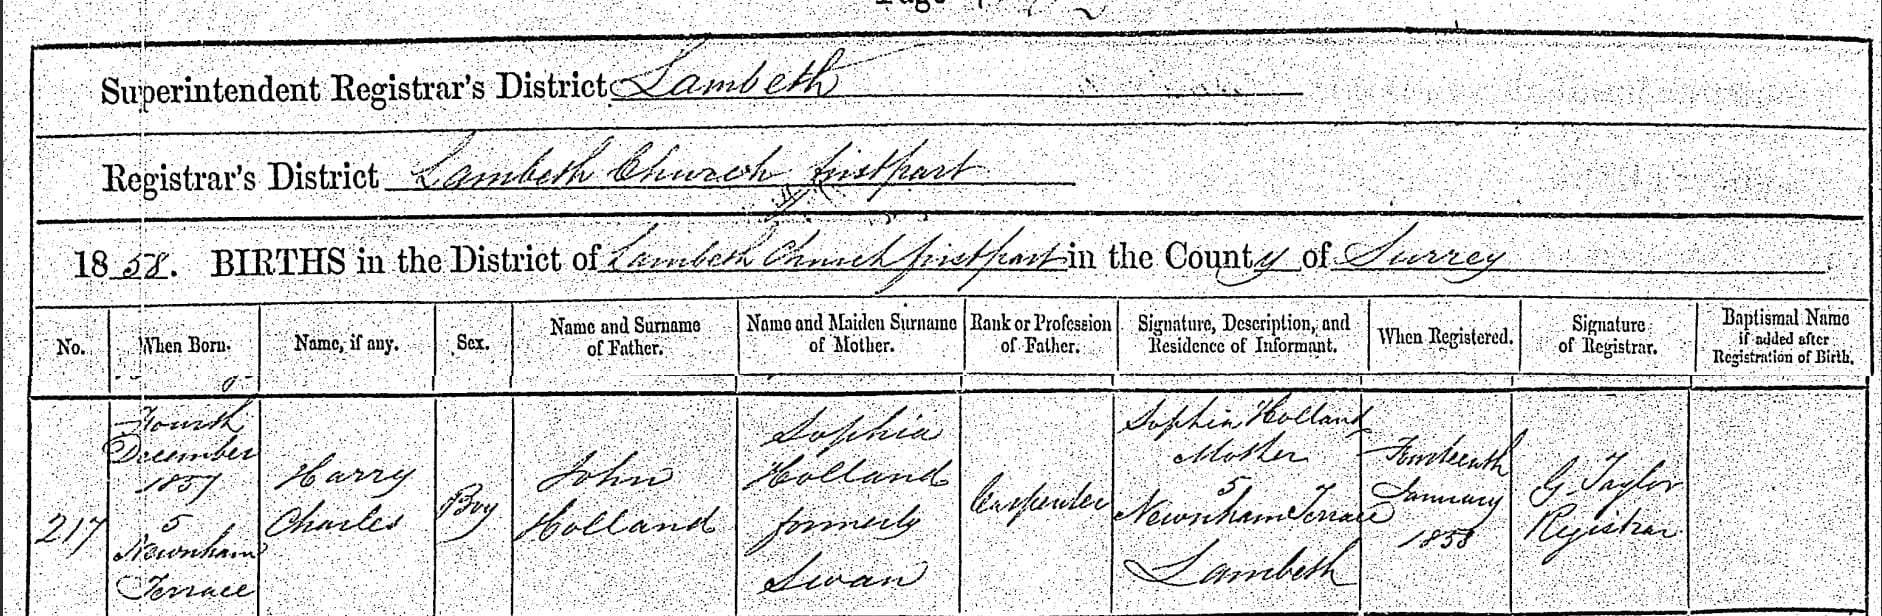 Page
Superintendent Registrar's District Lambeth
Registrar's District Lambeth Church first part
1858. BIRTHS in the District of Lambeth Church first part in the County of Surrey
No.
When Born.
Name, if any.
Sex.
Name and Surname
of Father.
Name and Maiden Surname
of Mother.
Rank or Profession
of Father.
Signature, Description, and
Residence of Informant.
When Registered.
Signature
of Registrar.
Baptismal Name
if added after
Registration of Birth.
217
Fourth
December
1857
5
Newnham
Terrace
Harry
Charles
Boy
John
Holland
Sophia
Holland
formerly
Swan
Carpenter
Sophia Holland
Mother
5
Newnham Terrace
Lambeth
Fourteenth
January
1858
G. Taylor
Registrar